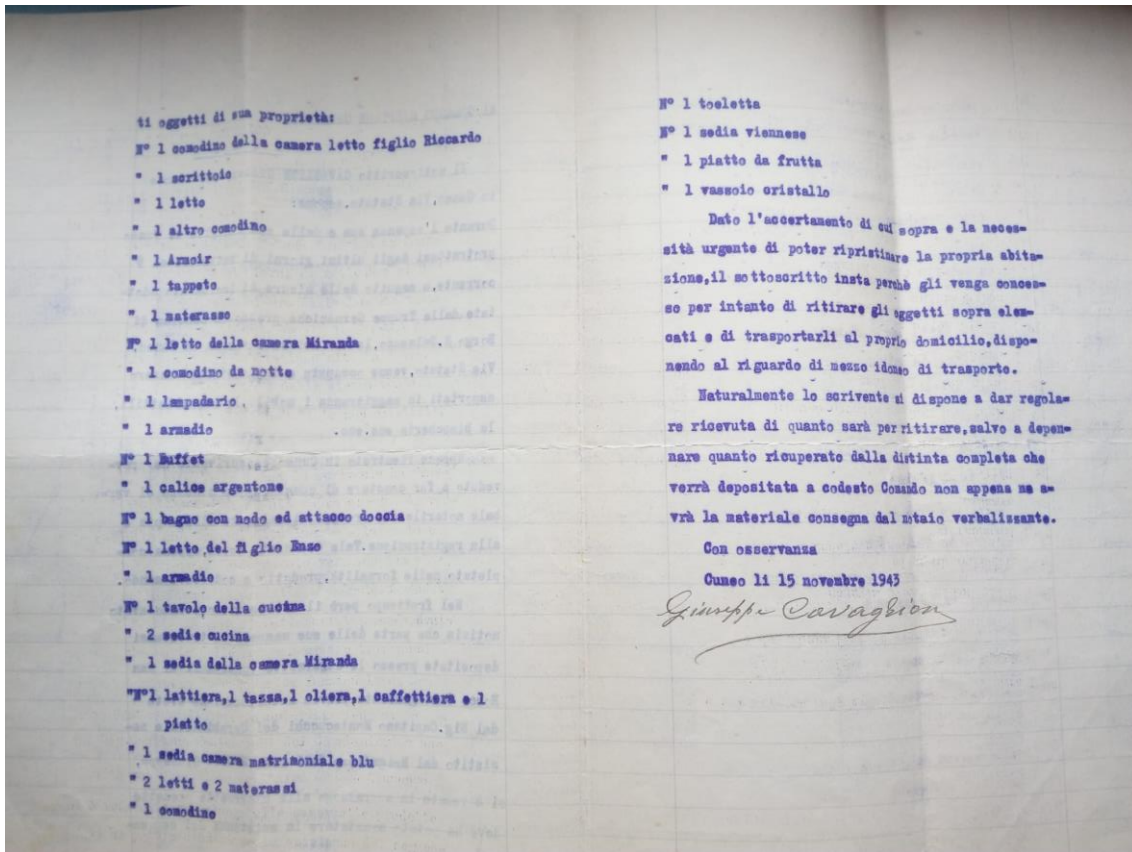 ti oggetti di sua proprietà:
N° 1 comodino della camera letto figlio Riccardo
" 1 scrittoio
" 1 letto
" 1 altro comodino
" 1 Armoir
" 1 tappeto
" 1 materasso
N° 1 letto della camera Miranda
" 1 comodino da notte
" 1 lampadario
" 1 armadio
N° 1 Buffet
" 1 calice argentone
N° 1 bagno con nodo ed attacco doccia
N° 1 letto del figlio Enzo
" 1 armadio
N° 1 tavolo della cucina
" 2 sedie cucina
" 1 sedia della camera Miranda
"N°1 lattiera,1 tazza,1 oliera,1 caffettiera e 1
piatto
" 1 sedia camera matrimoniale blu
" 2 letti e 2 materassi
" 1 comodino
N° 1 toeletta
N° 1 sedia viennese
" 1 piatto da frutta
" 1 vassoio cristallo
Dato l'accertamento di cui sopra e la neces=
sità urgente di poter ripristinare la propria abita=
zione,il sottoscritto insta perchè gli venga conces=
so per intanto di ritirare gli oggetti sopra elen=
cati e di trasportarli al proprio domicilio,dispo=
nendo al riguardo di mezzo idoneo di trasporto.
Naturalmente lo scrivente si dispone a dar regola=
re ricevuta di quanto sarà per ritirare,salvo a depen=
nare quanto ricuperato dalla distinta completa che
verrà depositata a codesto Comando non appena ne a=
vrà la materiale consegna dal notaio verbalizzante.
Con osservanza
Cuneo li 15 novembre 1943
Giuseppe Cavaglion